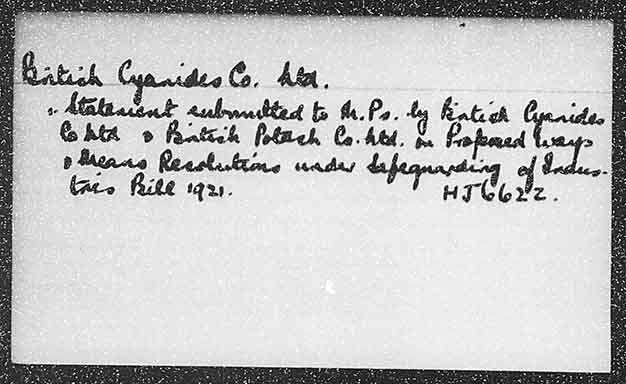 British Cyanides Co. Ltd.
Statement submitted to M.Ps. by British Cyanides
Co Ltd & British Potash Co. Ltd. on Proposed Ways
& Means Resolutions under Safeguarding of Indus-
tries Bill 1921. HJ6622.